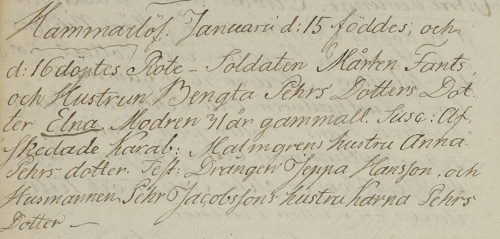 Hammarlöf. Januarii d: 15 föddes, och
d: 16 döptes Rote - Soldaten Mårten Fants
och Hustrun Bengta Pehrs Dotters Dot-
ter Elna. Modren 31 år gammall. Susc: Af-
skedade karab: Malmgrens hustru Anna
Pehrs dotter. Test: Drängen Jeppa Hansson, och
Husmannen Pehr Jacobssons hustru karna Pehrs
Dotter —